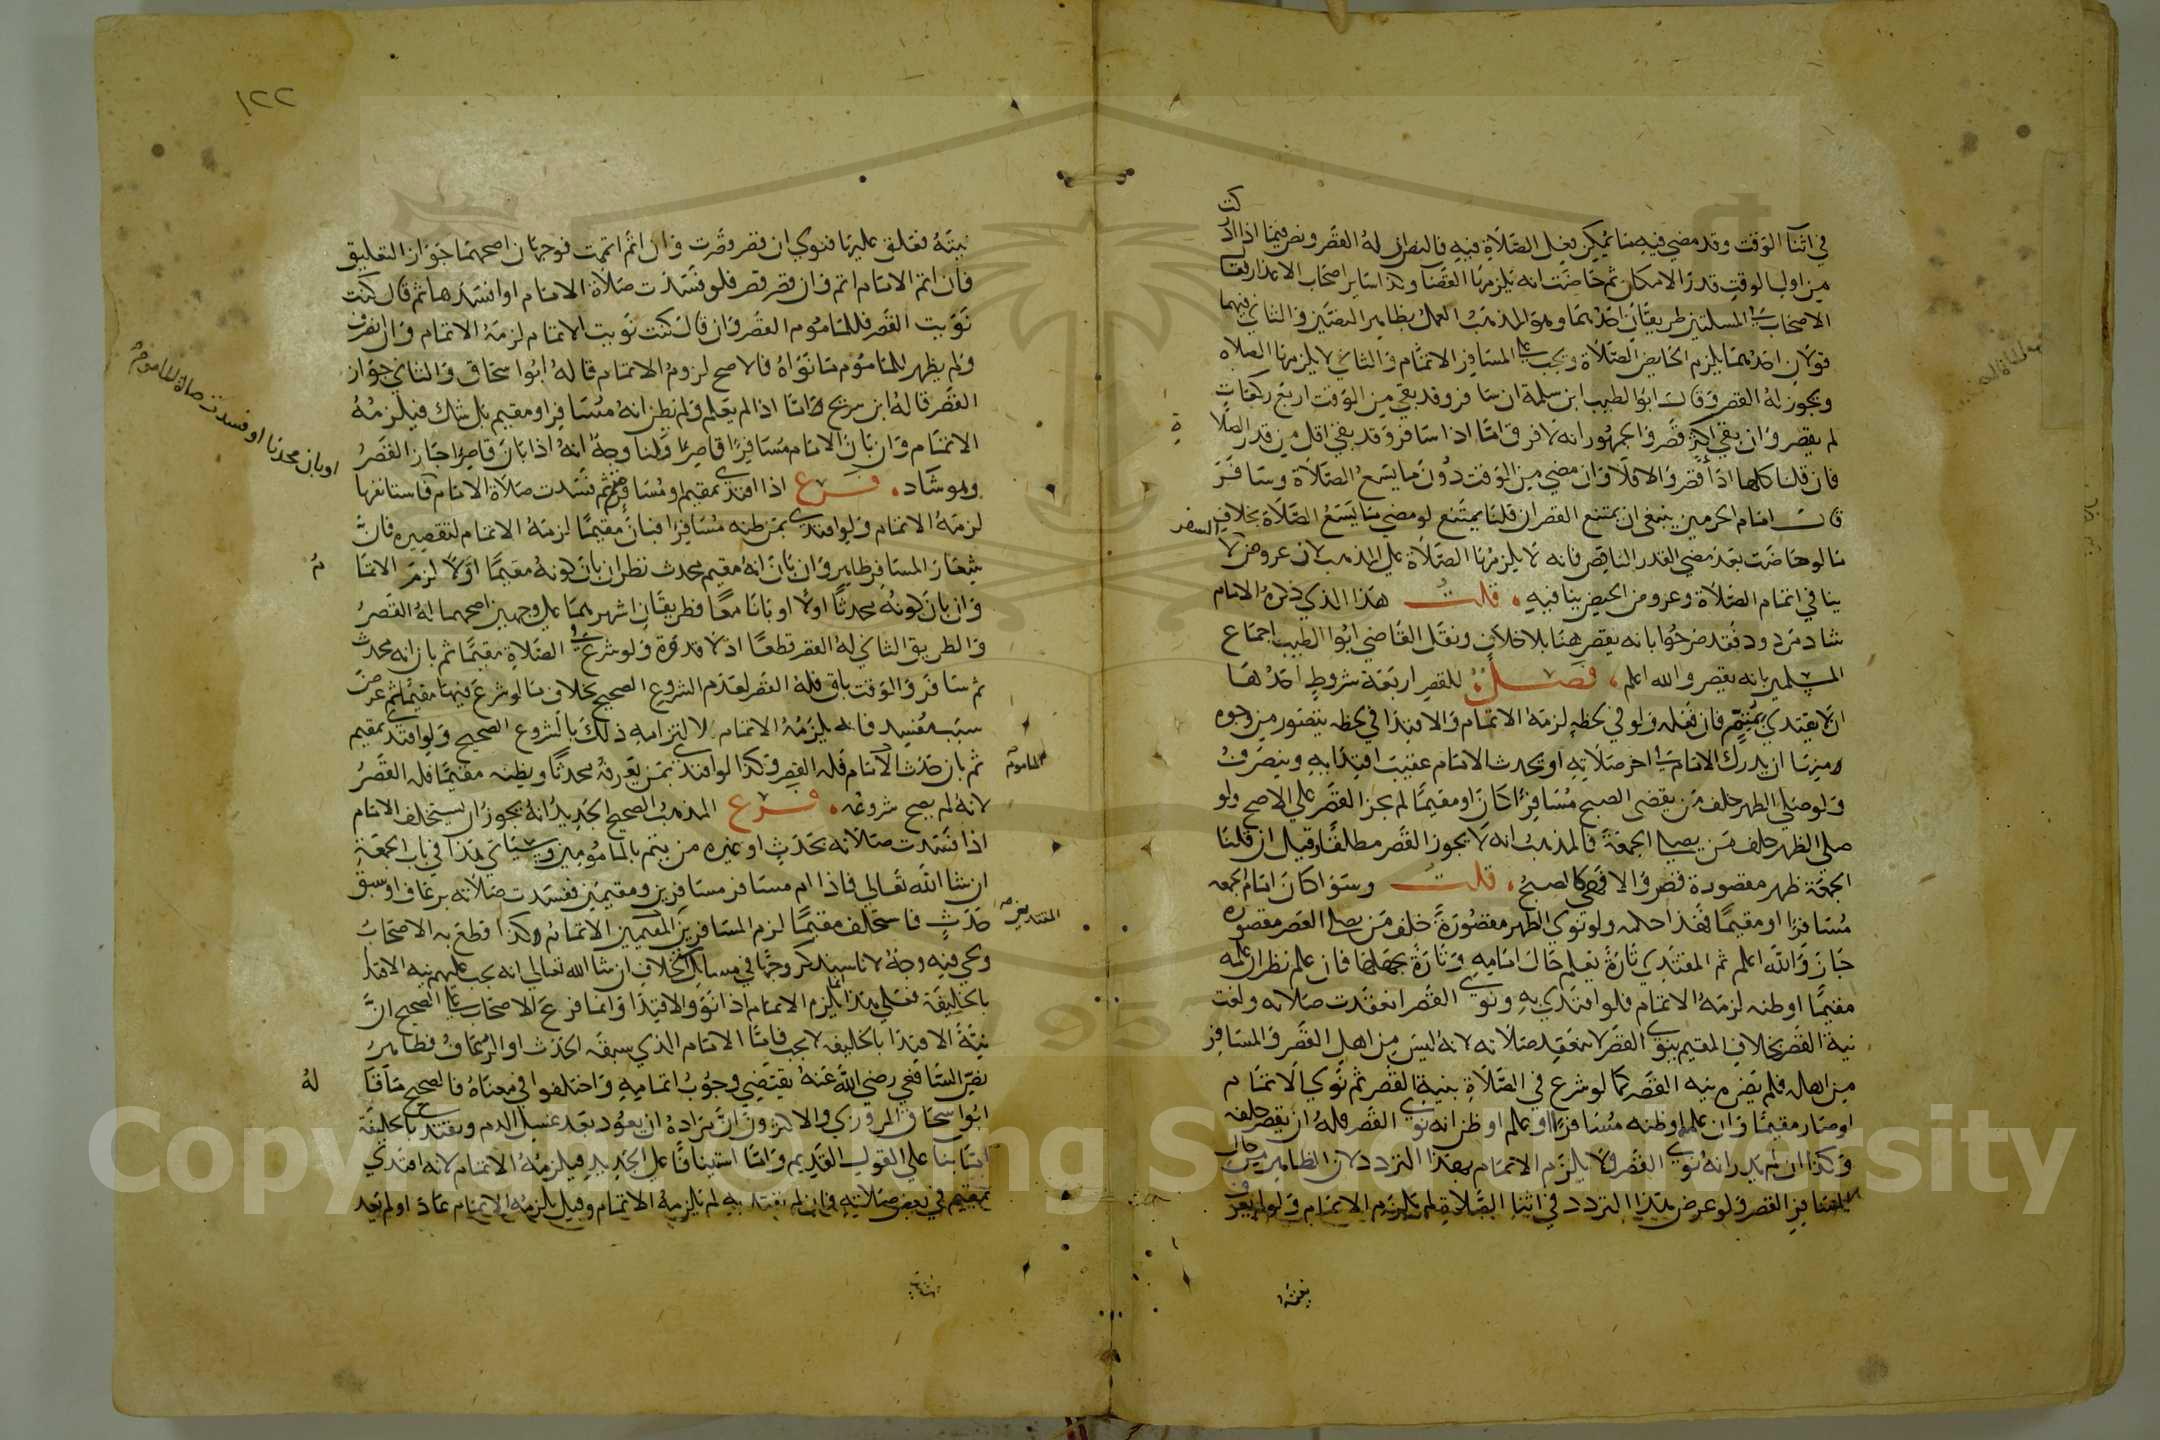 في اثنآ الوقت وقد مضي فيه ما يمكن فعل الصلاة فيه فالنص ان له القصر ونص فيما اذا ادركت
من اول الوقت قدر الامكان ثم حاضت انه يلزمها القضا وكذا ساير اصحاب الاعذار فقال
الاصحاب في المسلتين طريقان احدهما وهو المذهب العمل بظاهر النصين والثاني فيهما
قولان احدهما يلزم الحايض الصلاة ويجب على المسافر الاتمام والثاني لا يلزمها الصلاه
ويجوز له القصر وقال ابو الطيب ابن سلمة ان سافر وقد بقي من الوقت اربع ركعات
لم يقصر وان بقي اكثر قصر والجمهور انه لا فرق امّا اذا سافر وقد بقي اقل من قدر الصلاة
فان قلنا كلها اداً قصر والا فلا وان مضي من الوقت دون ما يسع الصلاة وسافر
قال امام الحرمين ينبغي ان يمتنع القصر ان قلنا يمتنع لو مضي ما يسع الصلاة بخلاف
ما لو حاضت بعد مضي القدر الناقص فانه لا يلزمها الصلاة على المذهب لان عروض السفر لا
ينافي اتمام الصلاة وعروض الحيض ينافيه قلت هذا الذي ذكره الامام
شاد مردود فقد صرحوا بانه يقصر هنا بلا خلاف ونقل القاضي ابوا الطيب اجماع
المسلمين بانه يقصر والله اعلم فصل للقصر اربعة شروط احدها
ان لا يقتدي بمتم فان فعله ولو في لحظه لزمه الاتمام والاقتدا في لحظه يتصور من وجوه
منها ان يدرك الامام في اخر صلاته او يحدث الامام عقيب اقتدايه وينصرف
ولو صلي الظهر خلف من يقضي الصبح مسافرًا كان او مقيمًا لم يجز القصر على الاصح ولو
صلي الظهر خلف من يصلي الجمعة فالمذهب انه لا يجوز القصر مطلقًا وقيل ان قلنا
الجمعة ظهر مقصورة قصر والا فهي كالصبح قلت وسوا كان امام الجمعه
مسافرًا او مقيمًا فهذا حكمه ولو نوي الظهر مقصورةً خلف من يصلي العصر مقصوره
جاز والله اعلم ثم المقتدي تارة يعلم حال امامه وتارة يجهلها فان علم نظر ان علمه
مقيمًا او ظنه لزمه الاتمام فلو اقتدي به ونوي القصر انعقدت صلاته ولغت
نية القصر بخلاف المقيم ينوي القصر لا تنعقد صلاته لانه ليس من اهل القصر والمسافر
من اهله فلم يضره نيه القصر كما لو شرع في الصلاة بنية القصر ثم نوي الاتمام
او صار مقيمًا وان علمه او ظنه مسافرًا او علم او ظن انه نوي القصر فله ان يقصر خلفه
وكذا ان لم يدر انه نوي القصر ولا يلزم الاتمام بهذا التردد لان الظاهر من حال
المسافر القصر ولو عرض هذا التردد في اثنا الصلاة لم يلزم الاتمام ولو لم يعرف
نيته
نيتهُ فعلق عليها فنوي ان قصر قصرت وان اتم اتممت فوجهان اصحهما جواز التعليق
فان اتم الامام اتم وان قصر قصر فلو فسدت صلاة الامام او افسدها ثم قال كنت
نويت القصر فللماموم القصر وان قال كنت نويت الاتمام لزمه الاتمام وان انصرف
ولم يظهر للماموم ما نواهُ فالاصح لزوم الاتمام قاله ابوا سحاق والثاني جواز
القصر قاله ابن سريج وامّا اذا لم يعلم ولم يظن انه مسافر او مقيم بل شك فيلزمه
الاتمام وان بان الامام مسافرًا قاصرًا ولنا وجه انه اذا بان قاصرًا جاز القصر
وهو شاد فرع اذا اقتدي بمقيم او مسافر متم ثم فسدت صلاة الامام
لزمهُ الاتمام ولو اقتدي بمن ظنه مسافرًا فبان مقيمًا لزمه الاتمام لتقصيره فان
شعار المسافر ظاهر وان بان انه مقيم محدث نظر ان بان كونه مقيمًا اولًا لزم الاتمام
وان بان كونه محدثًا اولًا او بانا معًا فطريقان اشهرهما على وجهين اصحهما له القصر
والطريق الثاني له القصر قطعًا اذ لا قدوة ولو شرع في الصلاة مقيمًا ثم بان انه محدث
ثم سافر والوقت باق فله القصر لعدم الشروع الصحيح بخلاف ما لو شرع فيها مقيمًا ثم عرض
سبب مفسد فانه يلزمه الاتمام لالتزامه ذلك بالشروع الصحيح ولو اقتدي بمقيم
ثم بان حدث الماموم فله القصر وكذا لو اقتدي بمن يعرفه محدثًا ويظنه مقيمًا فله القصر
لانه لم يصح شروعه فرع المذهب الصحيح الجديد انه يجوز ان يستخلف الامام
اذا فسدت صلاته بحدثٍ او غيره من يتم بالمامومين وسياتي هذا في باب الجمعة
ان شا الله تعالي فاذا ام مسافر مسافرين ومقيمين ففسدت صلاته برعاف او سبق
حدثٍ فاستخلف مقيمًا لزم المسافرين المقتدين الاتمام وكذا قطع به الاصحاب
ويجي فيه وجه لانا سنذكر وجهًا في مسايل الخلاف ان شا الله تعالي انه يجب عليهم نيه الاقتدا
بالخليفة فعلي هذا انما يلزم الاتمام اذا نووا الاقتدا وانما فرع الاصحاب على الصحيح ان
نية الاقتدا بالخليفه لا يجب فامّا الامام الذي سبقه الحدث او الرعاف فظاهر
نصّ الشافعي رضي الله عنهُ يقتضي وجوب اتمامه واختلفوا في معناه فالصحيح ما قاله
ابوا سحاق المروزي والاكثرون ان مراده ان يعود بعد غسل الدم ويقتدي بالخليفة
امّا بنا علي القول القديم وامّا استينافًا علي الجديد فيلزمه الاتمام لانه اقتدي
بمقيم في بعض صلاته فان لم يقتد به لم يلزمه الاتمام وقيل يلزمه الاتمام عاد او لم يعد
او بان محدثا او فسدت صلاة الماموم
الماموم
١٢٢